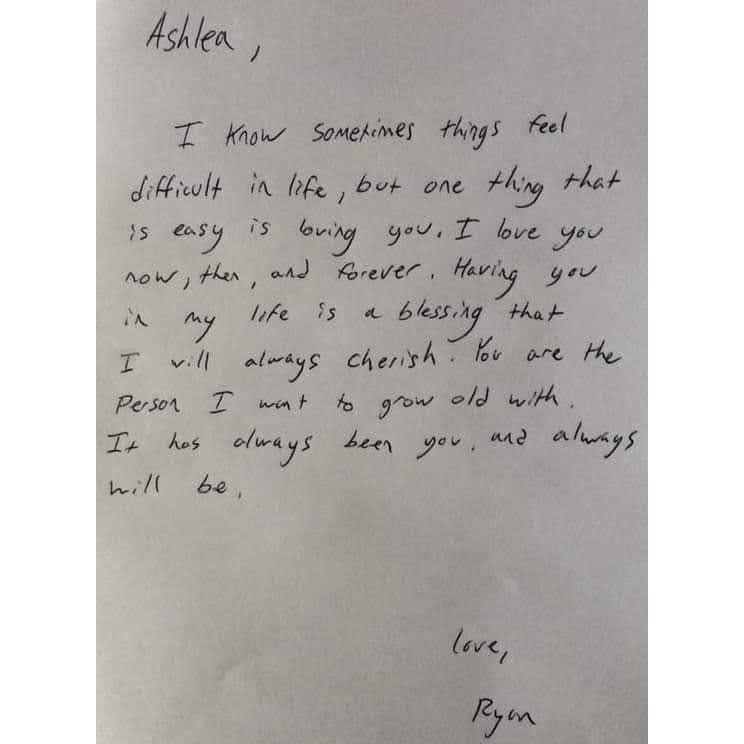 Ashlea,
I know sometimes things feel
difficult in life, but one thing that
is easy is loving you. I love you
now, then, and forever. Having you
in my life is a blessing that
I will always cherish. You are the
person I want to grow old with.
It has always been you, and always
will be.
love,
Ryan